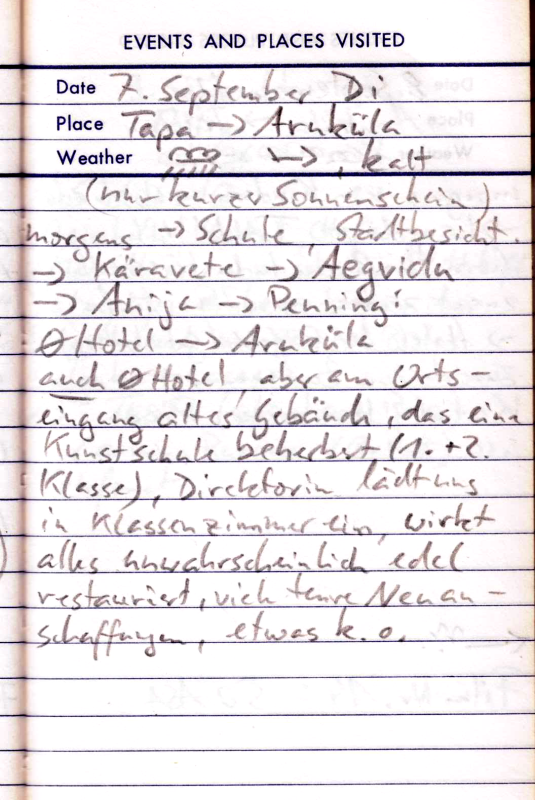 EVENTS AND PLACES VISITED
Date 7. September Di
Place Tapa → Aruküla
Weather →, kalt
(nur kurzer Sonnenschein)
morgens → Schule, Stadtbesicht.
→ Käravete → Aegviidu
→ Anija → Penningi
Ø Hotel → Aruküla
auch Ø Hotel, aber am Orts-
eingang altes Gebäude, das eine
Kunstschule beherbert (1. + 2.
Klasse), Direktorin lädt uns
in Klassenzimmer ein, wirkt
alles unwahrscheinlich edel
restauriert, viele teure Neuan-
schaffungen, etwas k.o.